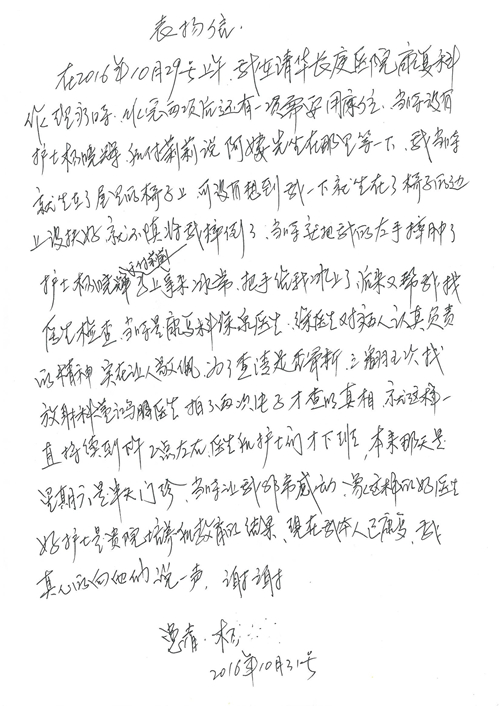 表扬信.
在2016年10月29号上午.我在清华长庚医院康复科
做理疗时.做完两项后还有一项需要用床位.当时没有
护士杨晓辉和付莉莉说阿姨先生在那里等一下.我当时
就坐在了屋里的椅子上 可没有想到我一下就坐在了椅子的边
上没扶好就不慎将我摔倒了.当时就把我的左手摔肿了
护士杨晓辉还付莉莉马上拿来冰带.把手给我冰上了,后来又帮我找
医生检查.当时是康复科徐泉医生.徐医生对病人认真负责
的精神 实在让人敬佩.为了查清是否骨折.三翻五次找
放射科董鸿鹏医生 拍了两次片子才查明真相 就这样一
直持续到下午2点左右.医生和护士们才下班,本来那天是
星期六是半天门诊.当时让我非常感动.象这样的好医生
好护士是贵院培养和教育的结果.现在我本人已康复.我
真心的向他们说一声.谢谢
患者.杨
2016年10月31号